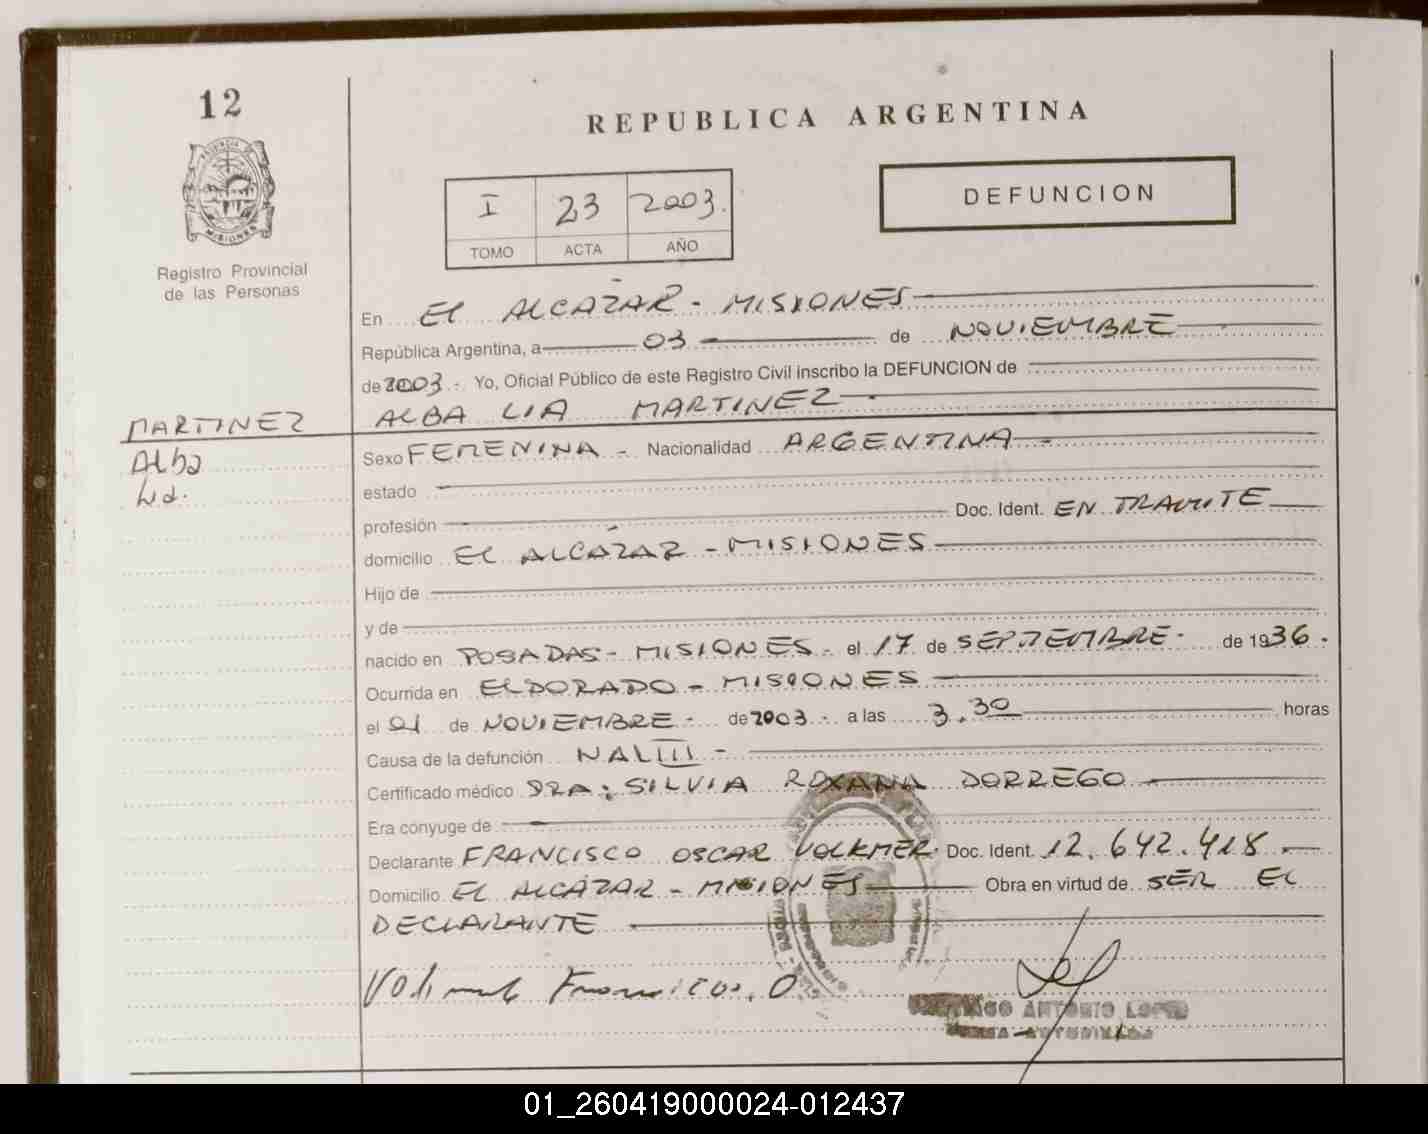 12
REPUBLICA ARGENTINA
PROVINCIA DE
MISIONES
Registro Provincial
de las Personas
I 23 2003.
TOMO ACTA AÑO
DEFUNCION
En El ALCAZAR - MISIONES
República Argentina, a 03 de NOVIEMBRE
de 2003 - Yo, Oficial Público de este Registro Civil inscribo la DEFUNCION de
ALBA LIA MARTINEZ
MARTINEZ
Alba
Lia.
Sexo FEMENINA - Nacionalidad ARGENTINA
estado
profesión Doc. Ident. EN TRAMITE
domicilio EL ALCÁZAR - MISIONES
Hijo de
y de
nacido en POSADAS - MISIONES - el 17 de SEPTIEMBRE - de 1936.
Ocurrida en ELDORADO - MISIONES
el 01 de NOVIEMBRE - de 2003 - a las 3.30 horas
Causa de la defunción NALIII -
Certificado médico DRA: SILVIA ROXANA DORREGO
Era cónyuge de
Declarante FRANCISCO OSCAR VOLKMER. Doc. Ident. 12.642.418.
Domicilio EL ALCÁZAR - MISIONES Obra en virtud de SER EL
DECLARANTE
Francisco. O
ANTONIO LOPEZ
01_260419000024-012437